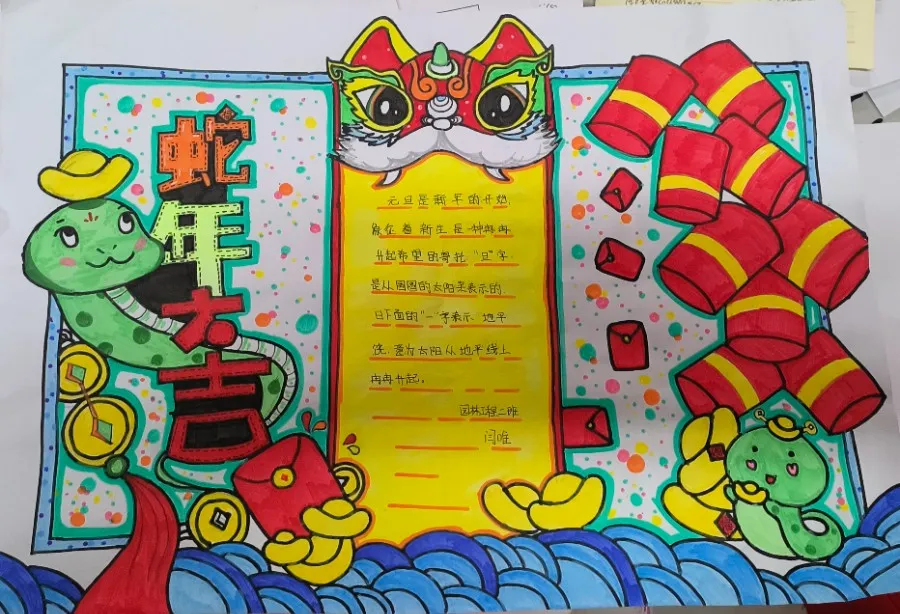 蛇年大吉
元旦是新年的开始,
象征着新生是一种冉冉
升起希望的寄托"旦"字.
是从圆圆的太阳来表示的.
日下面的"一"字表示地平
线.意为太阳从地平线上
冉冉升起。
园林工程二班
闫唯